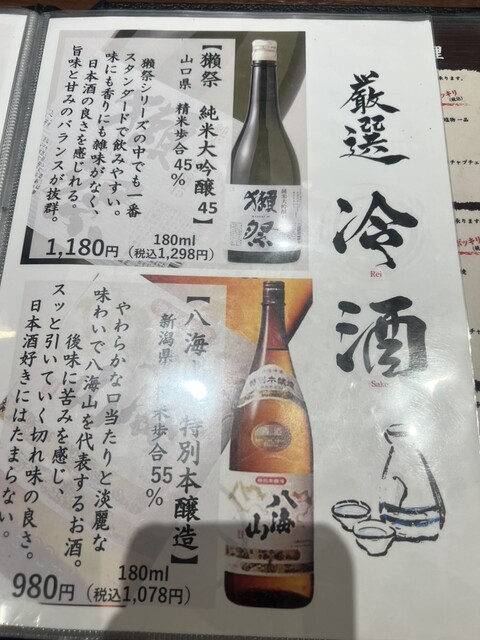 厳選
冷酒
Rei
Sake
【獺祭 純米大吟醸45】
山口県 精米歩合45%
獺祭シリーズの中でも一番
スタンダードで飲みやすい。
味にも香りにも雑味がなく、
日本酒の良さを感じれる。
旨味と甘みのバランスが抜群。
180ml
1,180円(税込1,298円)
獺祭
【八海山 特別本醸造】
新潟県 精米歩合55%
やわらかな口当たりと淡麗な
味わいで八海山を代表するお酒。
後味に苦みを感じ、
スッと引いていく切れ味の良さ。
日本酒好きにはたまらない。
180ml
980円(税込1,078円)
特別本醸造
八海山